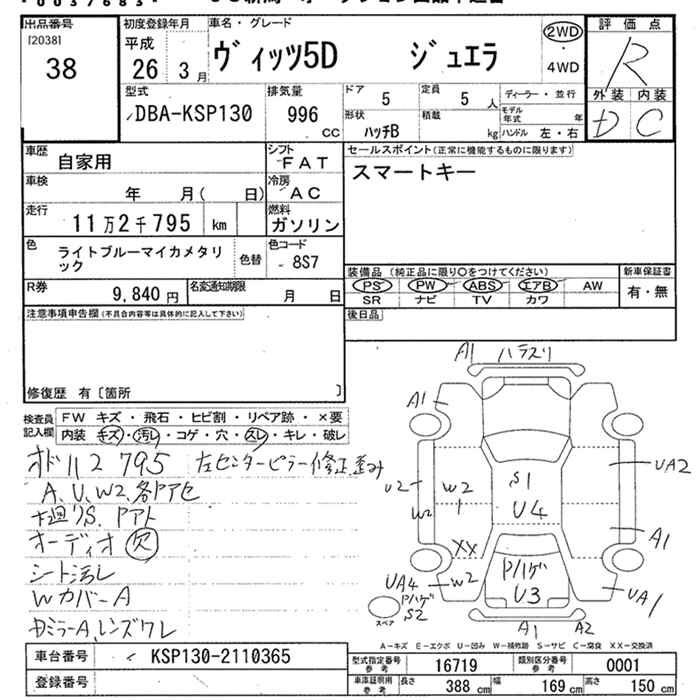 出品番号
[20381
38
初度登録年月
平成
26 3月
車名・グレード
ヴィッツ5D ジュエラ
2WD
・
4WD
評価点
R
外装 内装
D C
型式
DBA-KSP130
排気量
996
CC
ドア
5
定員
5 人
ディーラー・並行
モデル年式 年
形状
ハッチB
積載
kg
ハンドル 左・右
車歴
自家用
シフト
FAT
セールスポイント(正常に機能するものに限ります)
スマートキー
車検
年 月( 日)
冷房
AC
走行
11万2千795 km
燃料
ガソリン
色
ライトブルーマイカメタリ
ック
色替
色コード
8S7
装備品 (純正品に限り〇をつけてください)
PS PW ABS エアB AW
SR ナビ TV カワ
新車保証書
有・無
R券
9,840 円
名変通知期限
月 日
後日品
注意事項申告欄(不具合内容等は具体的に記入して下さい)
修復歴 有〔箇所 〕
検査員
記入欄
FW キズ・飛石・ヒビ割・リペア跡・×要
内装 キズ・汚レ・コゲ・穴・スレ・キレ・破レ
オド112795 左センターピラー修正歪み
A、U、W2、各Pアセ
オーディオ欠
シート汚レ
WカバーA
DミラーA、レンズワレ
A1 ハラスリ
A1
U2
W2
W2
S1
U4
UA2
A1
XX
W2
UA4
Pハゲ
S2
Pハゲ
U3
UA1
A1 A2
スペア
A-キズ E-エクボ U-凹み W-補修跡 S-サビ C-腐食 XX-交換済
車台番号
KSP130-2110365
登録番号
型式指定番号
参考
16719
類別区分番号
参考
0001
車庫証明用
参考
長さ 388 cm
幅 169 cm
高さ 150 cm